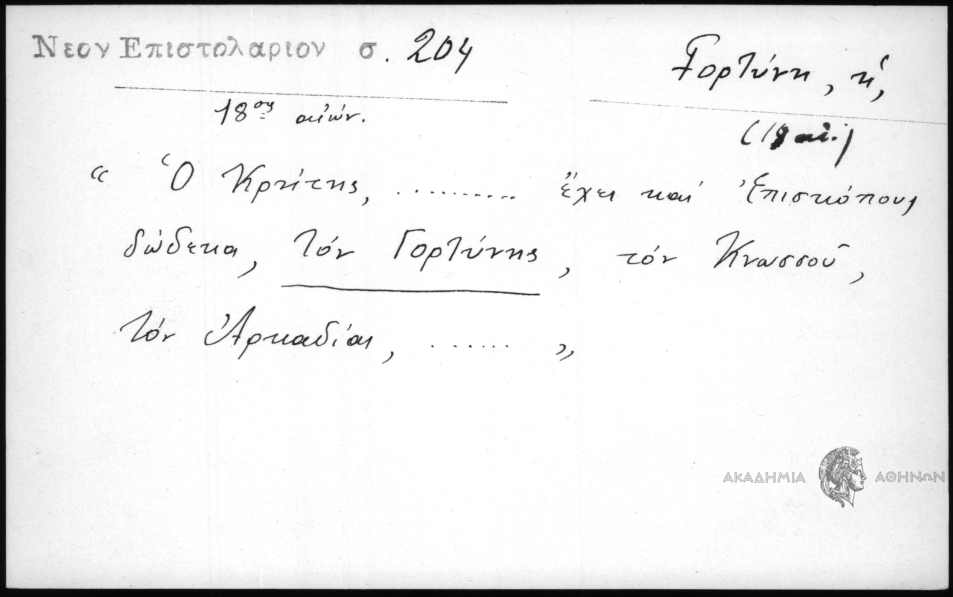 Νεον Επιστολαριον σ. 204
Γορτύνη, ἡ,
18ος αἰών.
(18 αἰ.)
“ Ὁ Κρήτης, ......... ἔχει καί Ἐπισκόπους
δώδεκα, τόν Γορτύνης, τόν Κνωσσοῦ,
τόν Ἀρκαδίας, ...... ”
ΑΚΑΔΗΜΙΑ ΑΘΗΝΩΝ